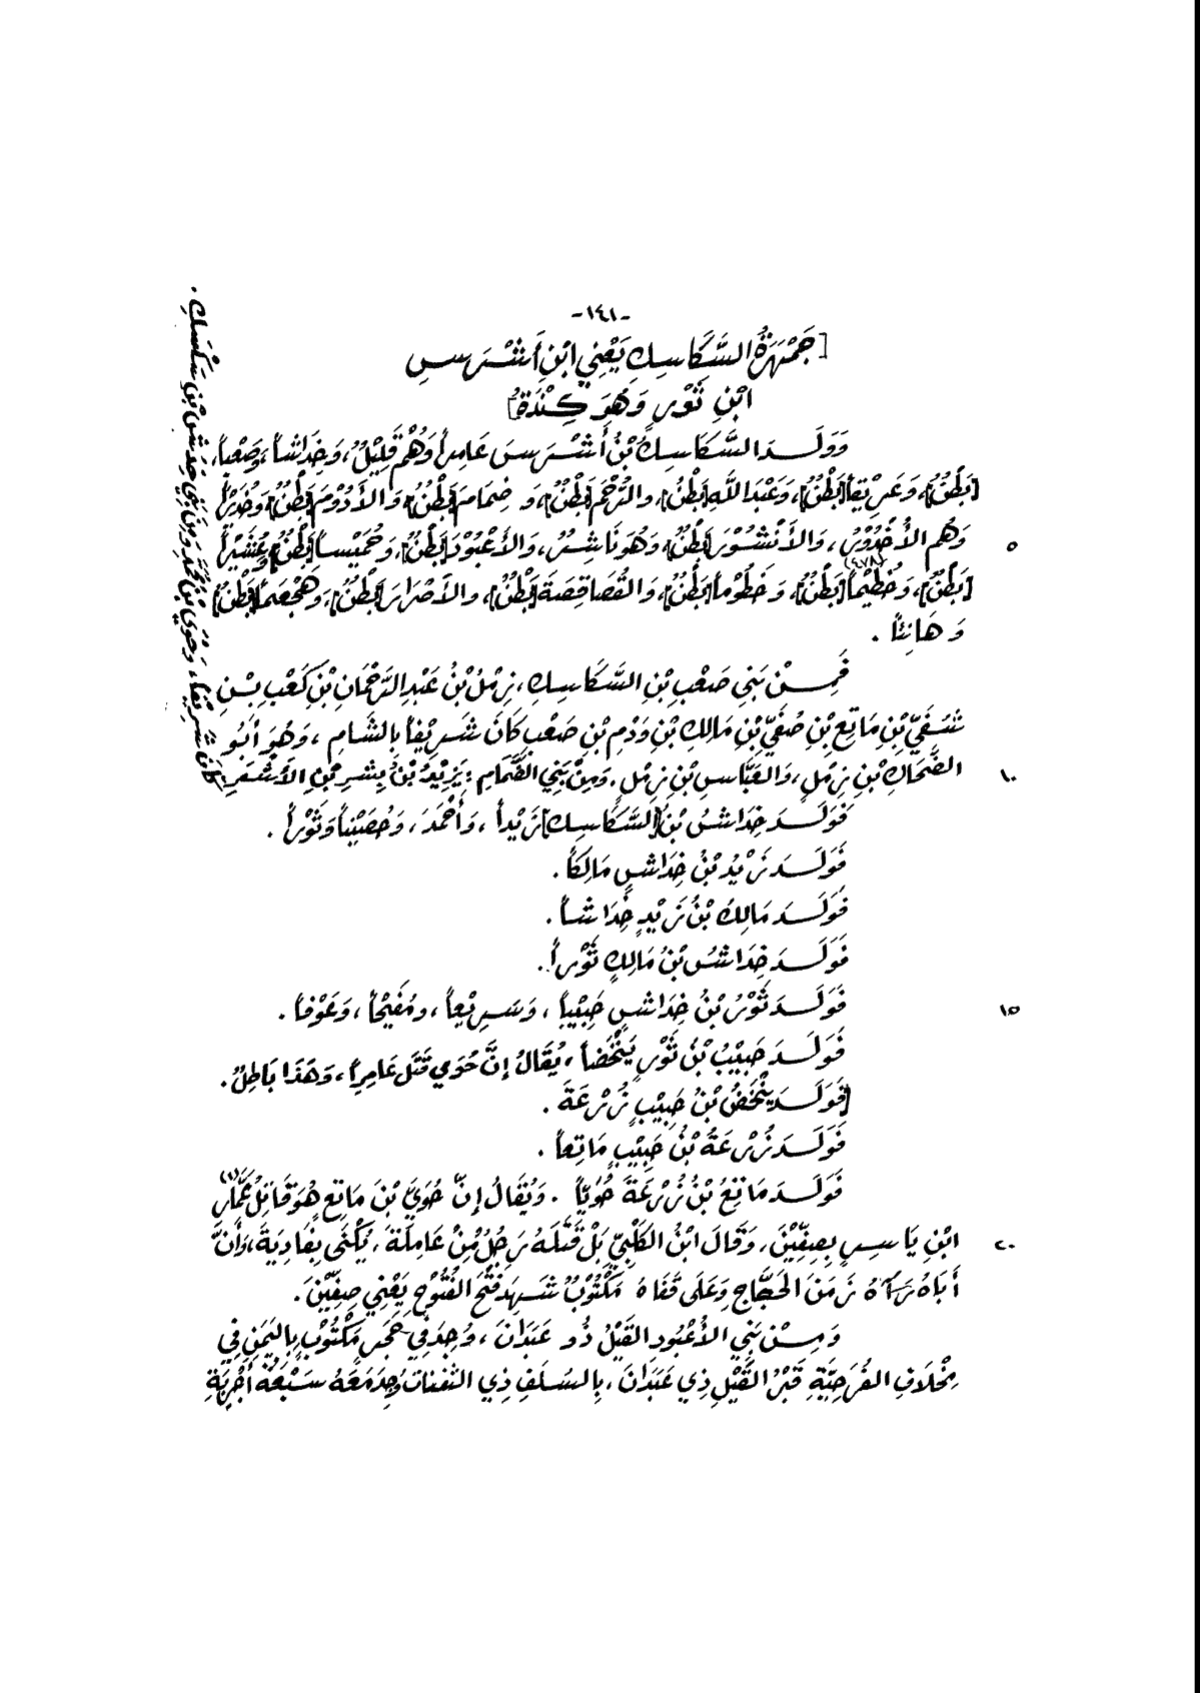 -١٤١-
[جَمْهَرَةُ السَّكَاسِكِ يَعْنِي ابْنِ أَشْرَسِ
ابْنِ ثَوْرٍ وَهُوَ كِنْدَةُ]
وَوَلَدَ السَّكَاسِكُ بْنُ أَشْرَسَ عَامِراً وَهُمْ قَلِيْلٌ، وَخِدَاشاً، وَصَعْباً،
[بَطْنٌ]، وَعَرِيْقاً [بَطْنٌ]، وَعَبْدَ اللَّهِ [بَطْنٌ]، والتَّرْخَمَ [بَطْنٌ]، وَ ضِمَامَ [بَطْنٌ] وَالأَدْوُمَ [بَطْنٌ] وَخُدَيْراً
وَهُم الأُخْدُوْرُ، وَالأُنْشُوْرَ [بَطْنٌ] وَهُوَ نَاشِرٌ، وَالأُعْبُوْدَ [بَطْنٌ]، وَحُمَيْساً [بَطْنٌ] وعُشَيْراً
٥
[بَطْنٌ]، وَخُطَيْماً (٤٧٨) [بَطْنٌ]، وَخَطُوْماً [بَطْنٌ]، وَالقُصَاقِصَةَ [بَطْنٌ]، والأَصْرَارَ [بَطْنٌ]، وَهَجْعَماً [بَطْنٌ]
وَ هَانِئاً .
فَمِنْ بَنِي صَعْبِ بْنِ السَّكَاسِكِ، زِمْلُ بْنُ عَبْدِ الرَّحْمَانِ بْنِ كَعْبِ بْنِ
شَفِيِّ بْنِ مَاتِعِ بْنِ صُفَيِّ بْنِ مَالِكِ بْنِ وَدْمِ بْنِ صَعْبٍ كَانَ شَرِيْفاً بِالشَّامِ ، وَهُوَ أَبُو
الضَّحَّاكِ بْنِ زِمْلٍ، وَالعَبَّاسِ بْنِ زِمْلٍ، وَمِنْ بَنِي الضِّمَامِ: يَزِيْدُ بْنُ بِشْرِ بْنِ الأَشْقَرِ
١٠
كَانَ شَرِيْفاً، وَحُوَيُّ بْنُ مُحَمَّدٍ وَمِنْ بَنِي خِدَاشِ بْنِ سَكْسَكِ .
فَوَلَدَ خِدَاشُ بْنُ [السَّكَاسِكِ] زَيْداً ، وَأَحْمَدَ، وَحُصَيْناً وَثَوْراً .
فَوَلَدَ زَيْدُ بْنُ خِدَاشٍ مَالِكاً .
فَوَلَدَ مَالِكُ بْنُ زَيْدٍ خِدَاشاً .
فَوَلَدَ خِدَاشُ بْنُ مَالِكٍ ثَوْراً .
فَوَلَدَ ثَوْرُ بْنُ خِدَاشٍ حَبِيْباً ، وَسَرِيْعاً ، ومُفِيْحاً، وَعَوْفاً .
١٥
فَوَلَدَ حَبِيْبُ بْنُ ثَوْرٍ يَنْخَضاً، يُقَالُ إنَّ حُوَي قَتَلَ عَامِراً، وَهَذَا بَاطِلٌ.
[فَوَلَدَ يَنْخَضُ بْنُ حَبِيْبٍ زُرْعَةَ .
فَوَلَدَ زُرْعَةُ بْنُ حَبِيْبٍ مَاتِعاً .
فَوَلَدَ مَاتِعُ بْنُ زُرْعَةَ حُوَيّاً . وَيُقَالُ إنَّ حُوَيَّ بْنَ مَاتِعٍ هُوَ قَاتِلُ عَمَّارِ (١)
ابْنِ يَاسِرٍ بِصِفِّيْنَ، وَقَالَ ابْنُ الكَلْبِيِّ بَلْ قَتَلَهُ رَجُلٌ مِنْ عَامِلَةَ، يُكْنَى بِغَادِيَةَ، وَأَنَّ
٢٠
أَبَاهُ رَآهُ زَمَنَ الحَجَّاجِ وَعَلَى قَفَاهُ مَكْتُوْبٌ شَهِدَ فَتْحَ الفُتُوْحِ يَعْنِي صِفِّيْنَ.
وَمِنْ بَنِي الأُعْبُودِ القَيْلُ ذُو عَبَدَانَ، وُجِدَ فِي حَجَرٍ مَكْتُوْبٍ بِاليَمَنِ فِي
مِخْلَافِ القُرَحِيَّةِ قَبْرُ القَيْلِ ذِي عَبَدَانَ، بِالسُّلَفِ ذِي الثفنات وُجِدَ مَعَهُ سَبْعَةُ أَجْرِبَةٍ